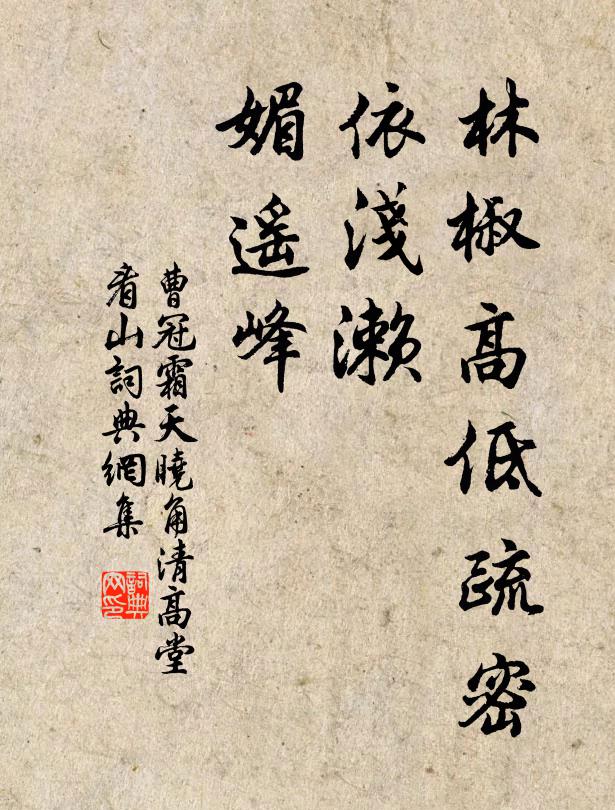 林椒高低疏密
依淺瀨
媚遥峰
曹冠霜天曉角清高堂
看山詞典網集
詞典
网印